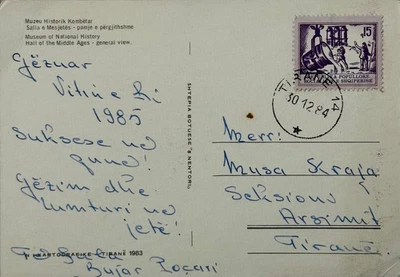 Muzeu Historik Kombëtar
Salla e Mesjetës - pamje e përgjithshme.
Museum of National History
Hall of the Middle Ages - general view.
Gëzuar
Vitin e Ri
1985
Suksese në
punë!
Gëzim dhe
lumturi në
jetë!
Bujar Poçari
SHTEPIA BOTUESE "8 NENTORI"
KARTOGRAFIKE TIRANË 1983
15
POPULLORE
SHQIPERISE
TIRANE 14
30 12 84
Merr:
Musa Kraja
Seksioni
Arsimit
Tiranë.